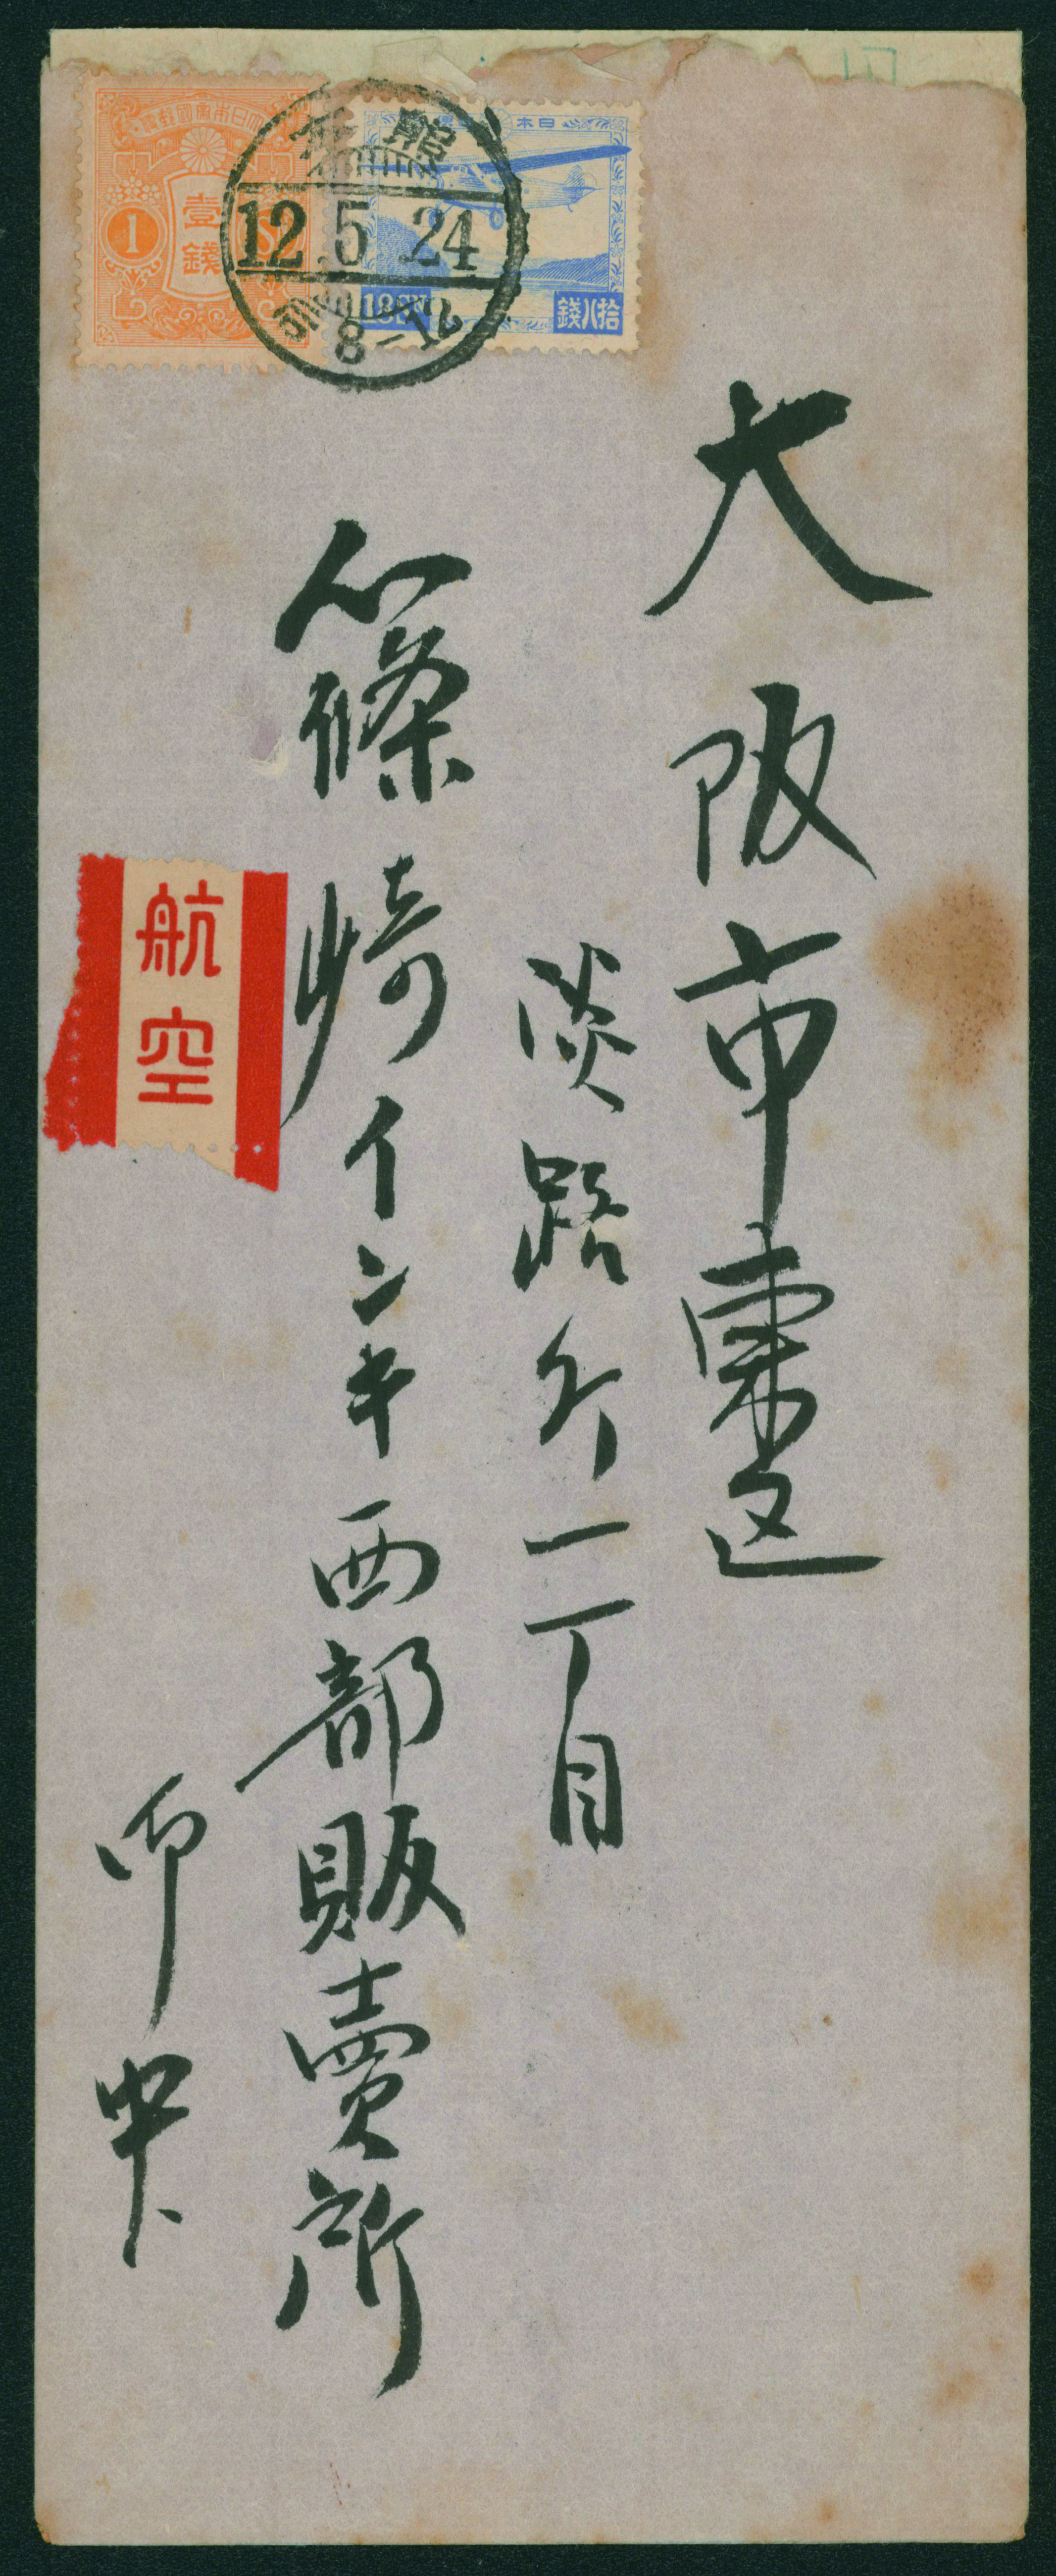 大日本帝國郵便
壹錢
1
大日本帝國郵便
拾八錢
館
12.5.24
前8-12
大阪市東区
淡路町二丁目
篠崎インキ西部販賣所
御中
航空